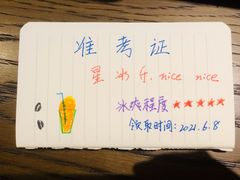 准考证
星冰乐.nice nice
冰爽程度★★★★★
领取时间:2021.6.8